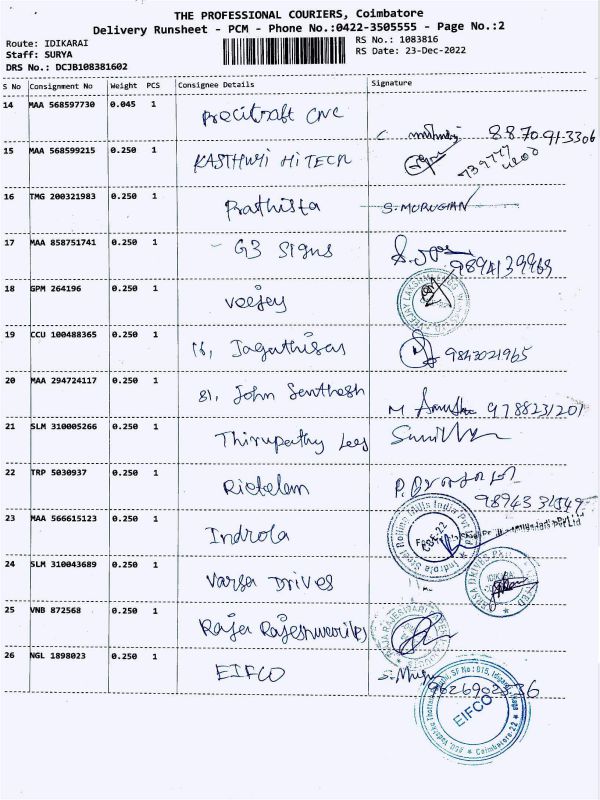 THE PROFESSIONAL COURIERS, Coimbatore
Delivery Runsheet - PCM - Phone No.:0422-3505555 - Page No.:2
Route: IDIKARAI
RS No.: 1083816
Staff: SURYA
RS Date: 23-Dec-2022
DRS No.: DCJB108381602
S No Consignment No Weight PCS Consignee Details Signature
14 MAA 568597730 0.045 1 Precitraft CNC 88.70.91-3306
15 MAA 568599215 0.250 1 KASTHURI HITECH
16 TMG 200321983 0.250 1 Prathista S. MURUGAN
17 MAA 858751741 0.250 1 G3 Signs 9894139969
18 GPM 264196 0.250 1 Veejey
19 CCU 100488365 0.250 1 16, Jagathisan 9843021965
20 MAA 294724117 0.250 1 81, John Senthosh M 9788231201
21 SLM 310005266 0.250 1 Thirupathy Legs
22 TRP 5030937 0.250 1 Rietelem
23 MAA 566615123 0.250 1 Indrola
Indrola Steel Rolling Mills India Pvt Ltd
24 SLM 310043689 0.250 1 Varsa Drives
25 VNB 872568 0.250 1 Raja Rajeshwari
26 NGL 1898023 0.250 1 EIFCO
EIFCO
Coimbatore-22